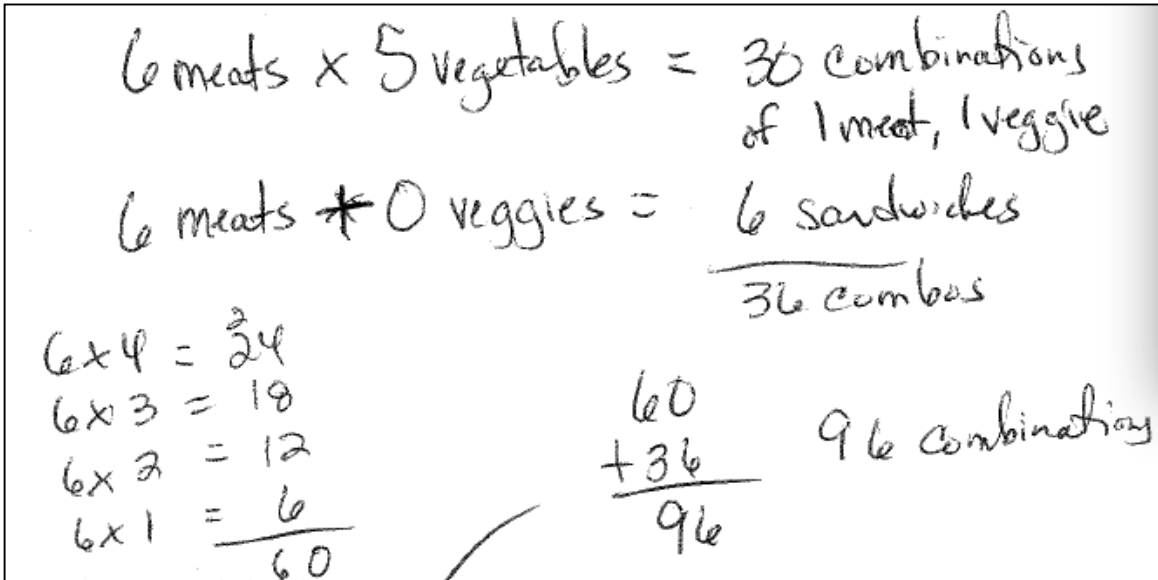 6 meats x 5 vegetables = 30 combinations
of 1 meat, 1 veggie
6 meats + 0 veggies = 6 sandwiches
36 combos
6x4 = 24
2
6x3 = 18
6x2 = 12
6x1 = 6
60
60
+36
96
96 combinations